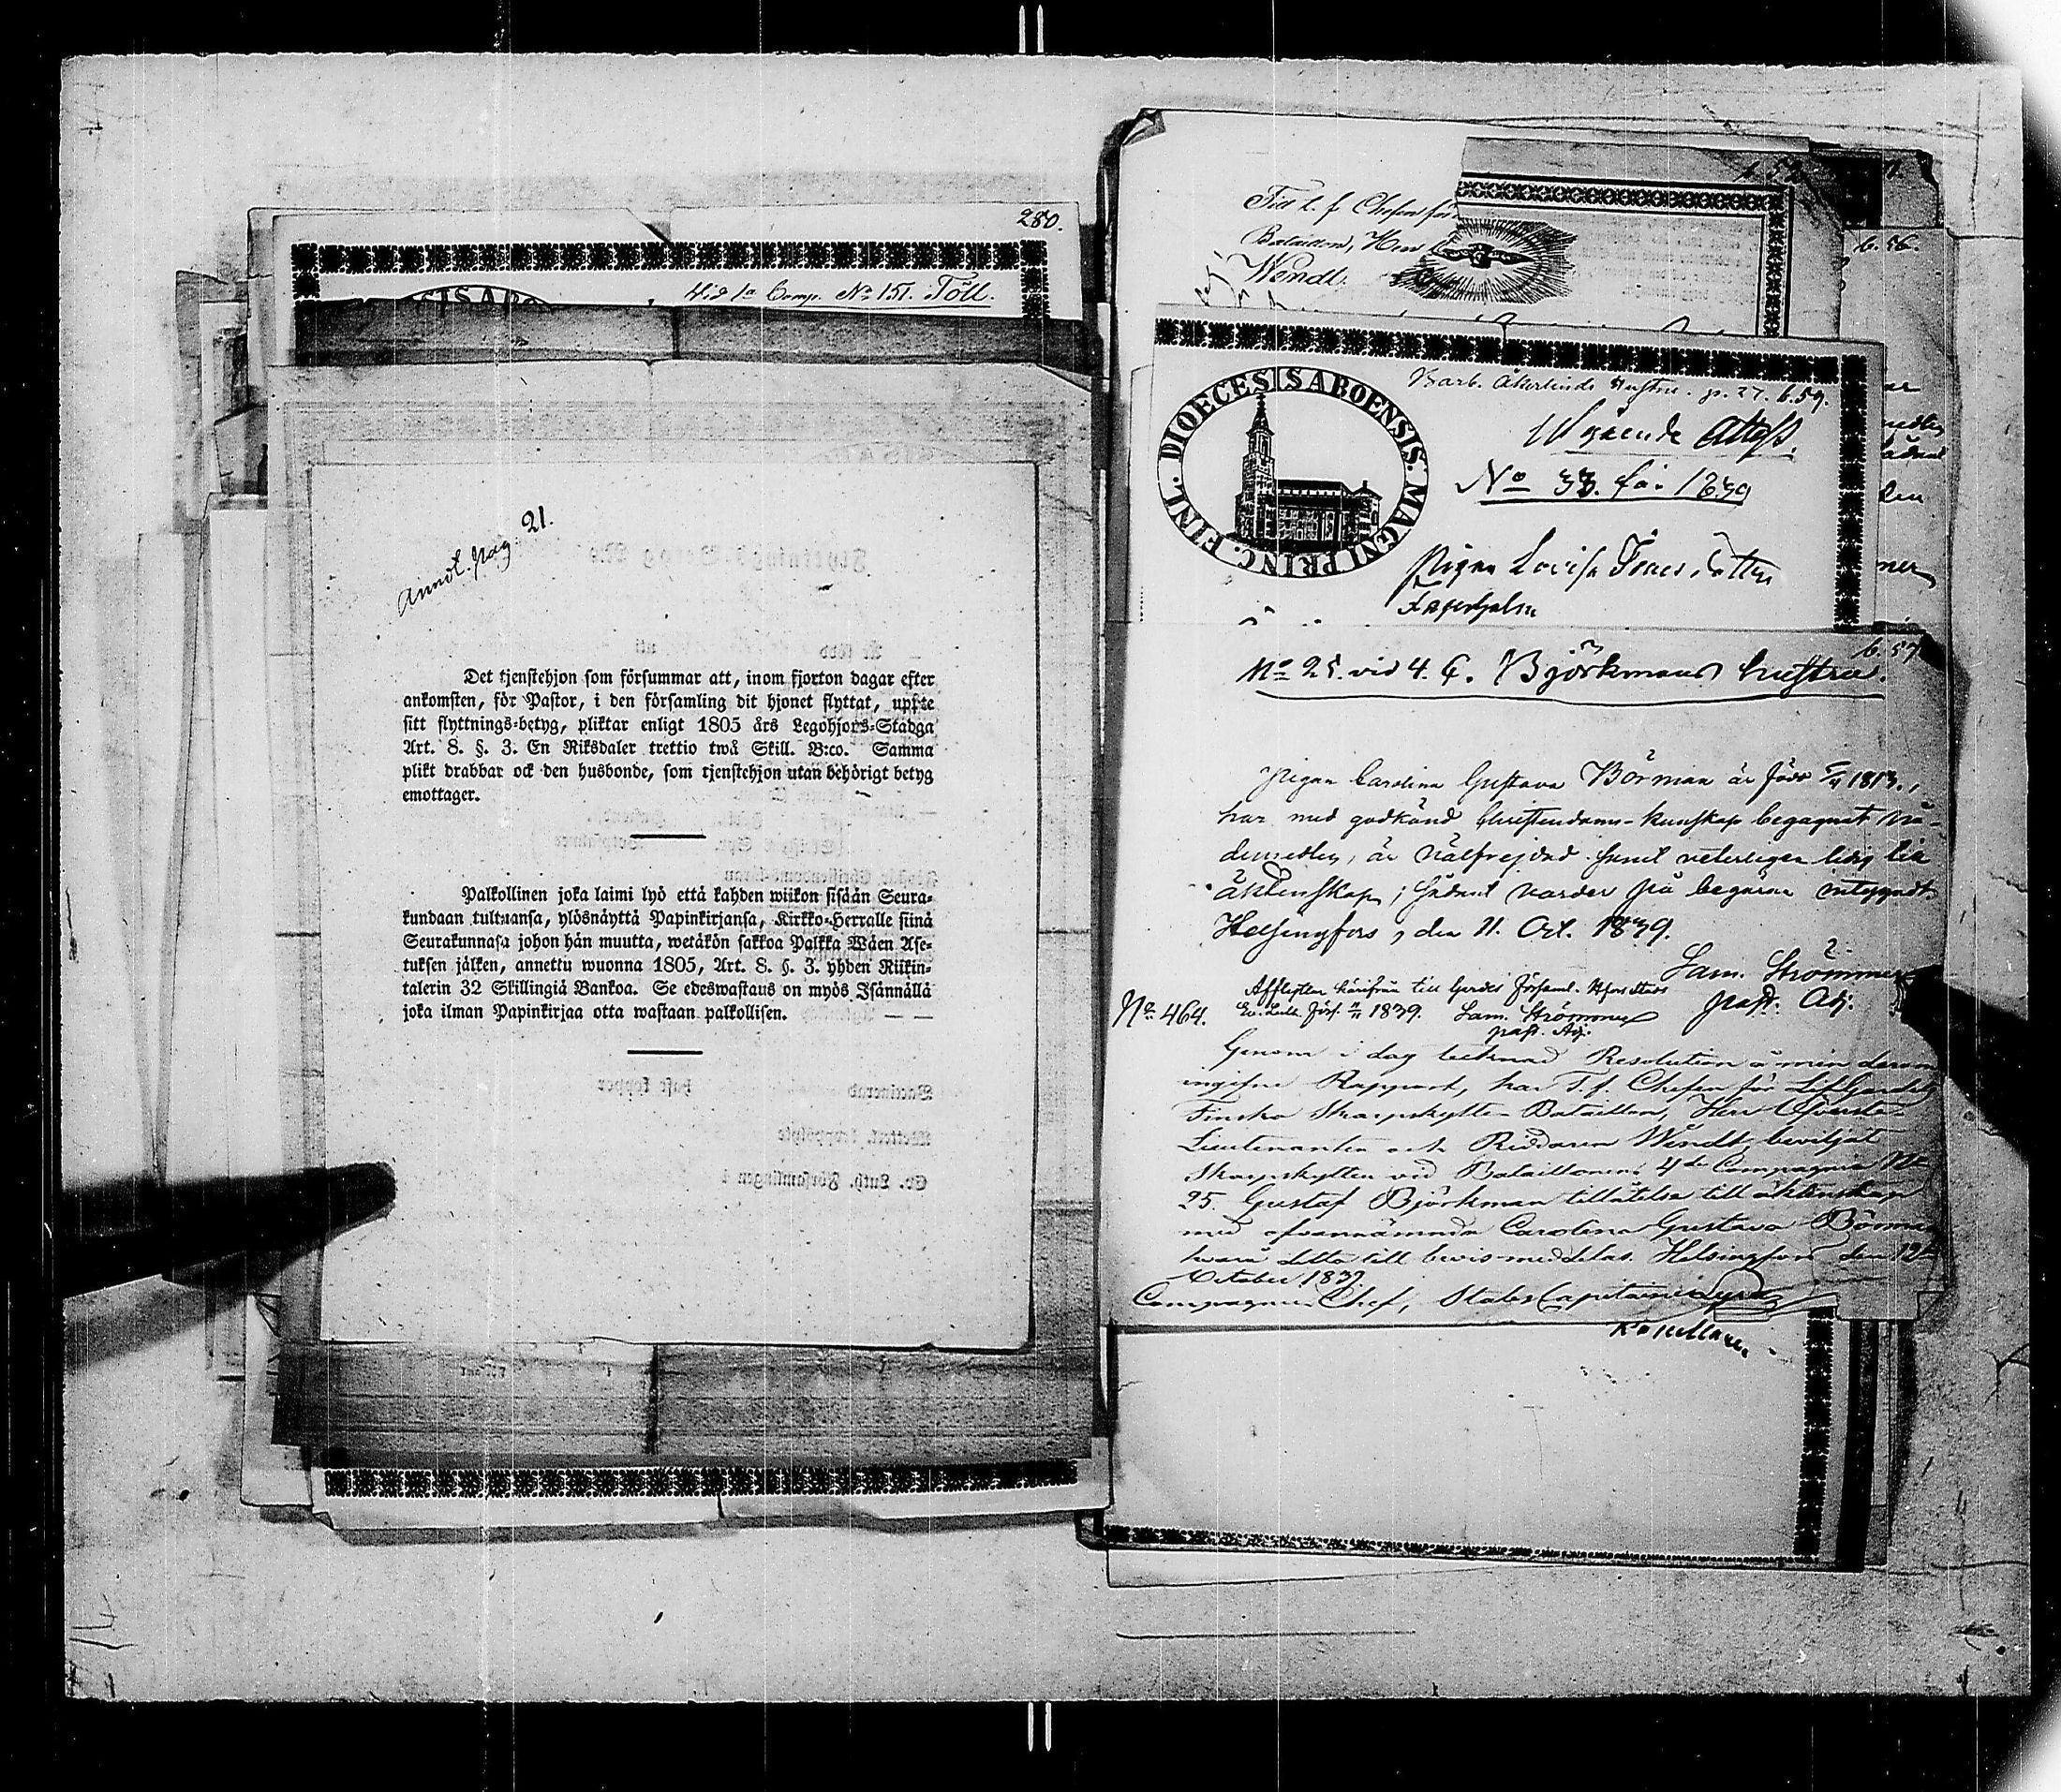 280.
Wid 1a Comp. No 151. Töll.
Annot. pag. 21.
Det tjenstehjon som försummar att, inom fjorton dagar efter
ankomsten, för Pastor, i den församling dit hjonet flyttat, uppte
sitt flyttnings-betyg, pliktar enligt 1805 års Legohjons-Stadga
Art. 8. §. 3. En Riksdaler trettio twå Skill. B:co. Samma
plikt drabbar ock den husbonde, som tjenstehjon utan behörigt betyg
emottager.
Palkollinen joka laimi lyö että kahden wiikon sisään Seura-
kundaan tultuansa, ylösnäyttä Papinkirjansa, Kirkko-Herralle siinä
Seurakunnasa johon hän muutta, wetäkön sakkoa Palkka Wäen Ase-
tuksen jälken, annettu wuonna 1805, Art. 8. §. 3. yhden Riikin-
talerin 32 Skillingiä Bankoa. Se edeswastaus on myös Isännällä
joka ilman Papinkirjaa otta wastaan palkollisen.
Till t. f. Chefen för
Bataillon, Herr
Wendt.
b. 52
b. 56.
DIOECESIS ABOENSIS. MAGNI PRINC. FINL.
Barb. Åkerlunds Hustru. p. 27. b. 59.
Attest.
No 33. för 1839
Pigan Lovisa
b. 57
No 25. vid 4. C. Björkmans hustru.
Pigan Carolina Gustava Börman är född 5/4 1813.,
har med godkänd Christendoms-kunskap begagnat Nå-
demedlen, är välfrejdad samt veterligen ledig till
äktenskap; sådant varder på begäran intygadt.
Helsingfors, den 11. Oct. 1839.
Sam. Strömmer
past. Adj.
No 464.
Afflyttar härifrån till Gardes Församl. Hfors stads
Ev. Luth. Förs. 1839. Sam. Strömmer
past. Adj.
Genom i dag tecknad Resolution å min derom
ingifne Rapport, har T. f. Chefen för Lif-Gardets
Finska Skarpskytte Bataillon, Herr Öfverste
Lieutenanten och Riddaren Wendt, beviljat
Skarpskytten vid Bataillonens 4de Compagnie No
25. Gustaf Björkman tillåtelse till äktenskap
med ofvannämnda Carolina Gustava Börman
hvarå detta till bevis meddelas. Helsingfors den 12
October 1839.
Compagnie Chef, Stabs Capitaine